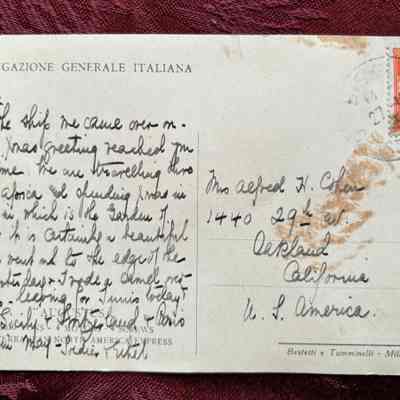 GAZIONE GENERALE ITALIANA
he ship we came over on.
Xmas greeting reached you
me. We are travelling thro
africa & spending Xmas in
in which is the Garden of
it is certainly a beautiful
went out to the edge of the
& I rode a camel
leaving for Tunis today
Sicily & & Paris
May - Sadie & Ethel
AUGUSTUS
NEWS
NORTH AMERICA EXPRESS
Mrs Alfred H. Cohen
1440 29th av.
Oakland
California
U. S. America.
Bestetti e Tumminelli - Mil